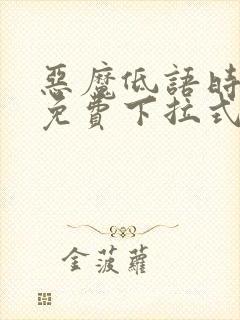 惡魔低語時
免費下拉式
金菠蘿